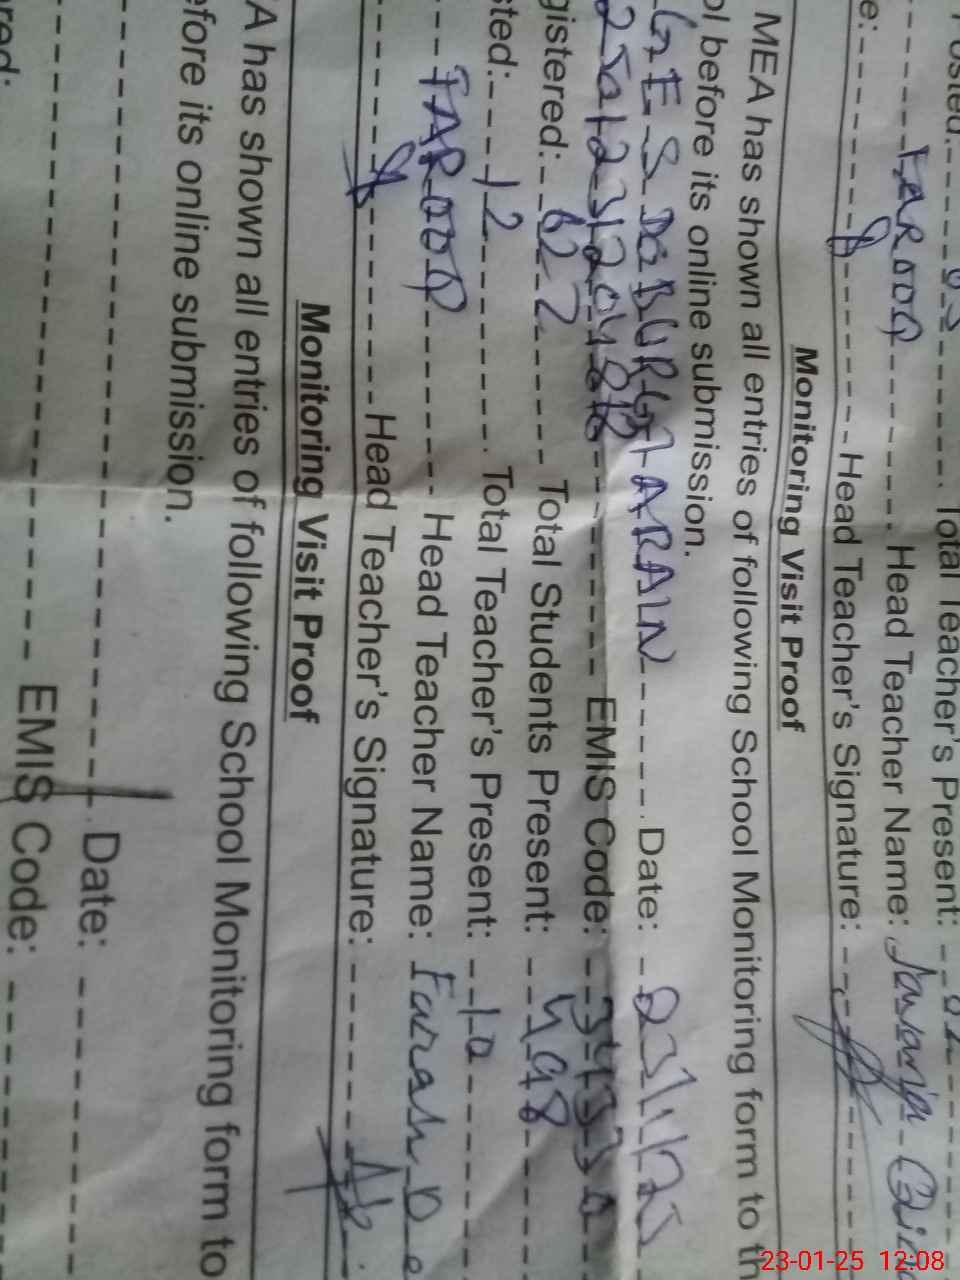 Posted: 03 Total Teacher's Present: 02
FAROOQ Head Teacher Name:
e: Head Teacher's Signature:
Monitoring Visit Proof
MEA has shown all entries of following School Monitoring form to th
ol before its online submission.
GES DABURGTARAIN Date: 23/1/25
EMIS Code:
gistered: 622 Total Students Present: 498
sted: 12 Total Teacher's Present: 10
FAROOQ Head Teacher Name: Farah De
Head Teacher's Signature:
Monitoring Visit Proof
A has shown all entries of following School Monitoring form to
efore its online submission.
Date:
EMIS Code:
ered:
23-01-25 12:08